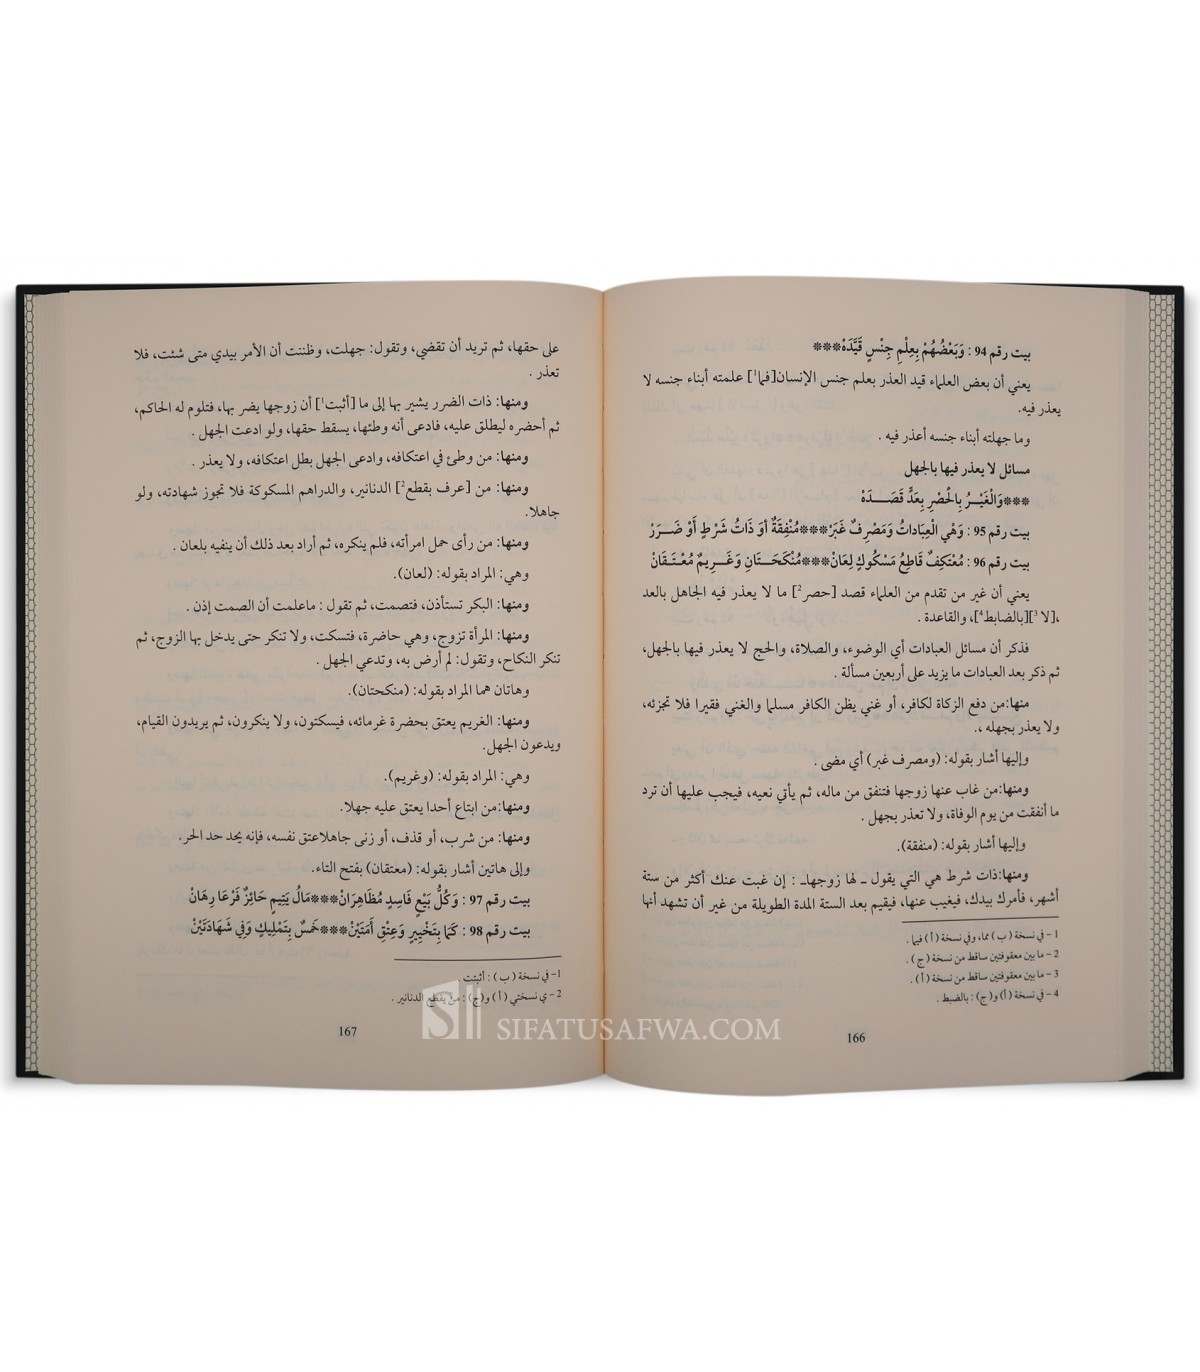 بيت رقم 94 : وَبَعْضُهُمْ بِعِلْمِ جِنْسٍ قَيَّدَهْ***
يعني أن بعض العلماء قيد العذر بعلم جنس الإنسان[فما¹] علمته أبناء جنسه لا
يعذر فيه.
وما جهلته أبناء جنسه أعذر فيه .
مسائل لا يعذر فيها بالجهل
***وَالْغَيْـــرُ بِالْحَصْرِ بِعَدٍّ قَصَـــدَهْ
بيت رقم 95 : وَهْيِ الْعِبَادَاتُ وَمَصْرِفٌ غَبَرْ***مُنْفِقَةٌ أوَ ذَاتُ شَرْطٍ أَوْ ضَـــرَرْ
بيت رقم 96 : مُعْتَكِفٌ قَاطِعُ مَسْكُوكٍ لِعَانْ***مُنْكَحَتَانِ وَغَـــرِيمٌ مُعْتَـــقَانْ
يعني أن غير من تقدم من العلماء قصد [حصر²] ما لا يعذر فيه الجاهل بالعد
،[لا ³][بالضابط⁴]، والقاعدة .
فذكر أن مسائل العبادات أي الوضوء، والصلاة، والحج لا يعذر فيها بالجهل،
ثم ذكر بعد العبادات ما يزيد على أربعين مسألة .
منها:من دفع الزكاة لكافر، أو غني يظن الكافر مسلما والغني فقيرا فلا تجزئه،
ولا يعذر بجهله ،.
وإليها أشار بقوله: (ومصرف غبر) أي مضى .
ومنها:من غاب عنها زوجها فتنفق من ماله، ثم يأتي نعيه، فيجب عليها أن ترد
ما أنفقت من يوم الوفاة، ولا تعذر بجهل .
وإليها أشار بقوله: (منفقة).
ومنها:ذات شرط هي التي يقول ـ لها زوجهاـ : إن غبت عنك أكثر من ستة
أشهر، فأمرك بيدك، فيغيب عنها، فيقيم بعد الستة المدة الطويلة من غير أن تشهد أنها
1- في نسخة (ب) مما، وفي نسخة (أ) فيما .
2- ما بين معقوفتين ساقط من نسخة (ج) .
3- ما بين معقوفتين ساقط من نسخة (أ) .
4- في نسخة (أ) و(ج): بالضبط .
166
على حقها، ثم تريد أن تقضي، وتقول: جهلت، وظننت أن الأمر بيدي متى شئت، فلا
تعذر .
ومنها: ذات الضرر يشير بها إلى ما [أثبت¹] أن زوجها يضر بها، فتلوم له الحاكم،
ثم أحضره ليطلق عليه، فادعى أنه وطئها، يسقط حقها، ولو ادعت الجهل .
ومنها: من وطئ في اعتكافه، وادعى الجهل بطل اعتكافه، ولا يعذر .
ومنها: من [عرف بقطع²] الدنانير، والدراهم المسكوكة فلا تجوز شهادته، ولو
جاهلا.
ومنها: من رأى حمل امرأته، فلم ينكره، ثم أراد بعد ذلك أن ينفيه بلعان .
وهي: المراد بقوله: (لعان).
ومنها: البكر تستأذن، فتصمت، ثم تقول : ماعلمت أن الصمت إذن .
ومنها: المرأة تزوج، وهي حاضرة، فتسكت، ولا تنكر حتى يدخل بها الزوج، ثم
تنكر النكاح، وتقول: لم أرض به، وتدعي الجهل .
وهاتان هما المراد بقوله: (منكحتان).
ومنها: الغريم يعتق بحضرة غرمائه، فيسكتون، ولا ينكرون، ثم يريدون القيام،
ويدعون الجهل.
وهي: المراد بقوله: (وغريم).
ومنها:من ابتاع أحدا يعتق عليه جهلا.
ومنها: من شرب، أو قذف، أو زنى جاهلاعتق نفسه، فإنه يحد حد الحر.
وإلى هاتين أشار بقوله: (معتقان) بفتح التاء.
بيت رقم 97 : وَكُلُّ بَيْعٍ فَاسِدٍ مُظَاهِرَانْ***مَالُ يَتِيمٍ حَائِزٌ فَرْعَا رِهَانْ
بيت رقم 98 : كَمَا بِتَخْيِيرٍ وَعِتْقِ أَمَتَيْنْ***خَمْسٌ بِتَمْلِيكٍ وَفِي شَهَادَتَيْنْ
1- في نسخة (ب) : أثبتت .
2- ي نسختي (أ) و(ج) : من يقطع الدنانير .
167
SIFATUSAFWA.COM